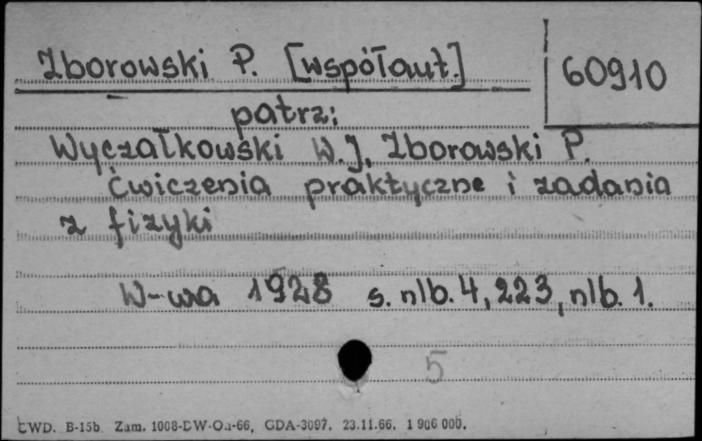 Zborowski P. [współaut.]
60910
patrz:
Wyczałkowski W.J., Zborowski P.
Ćwiczenia praktyczne i zadania
z fizyki
W-wa 1928 s. nlb. 4, 223, nlb. 1.
5
CWD. B-15b Zam. 1008-DW-Oa-66, GDA-3097. 23.11.66. 1 906 000.